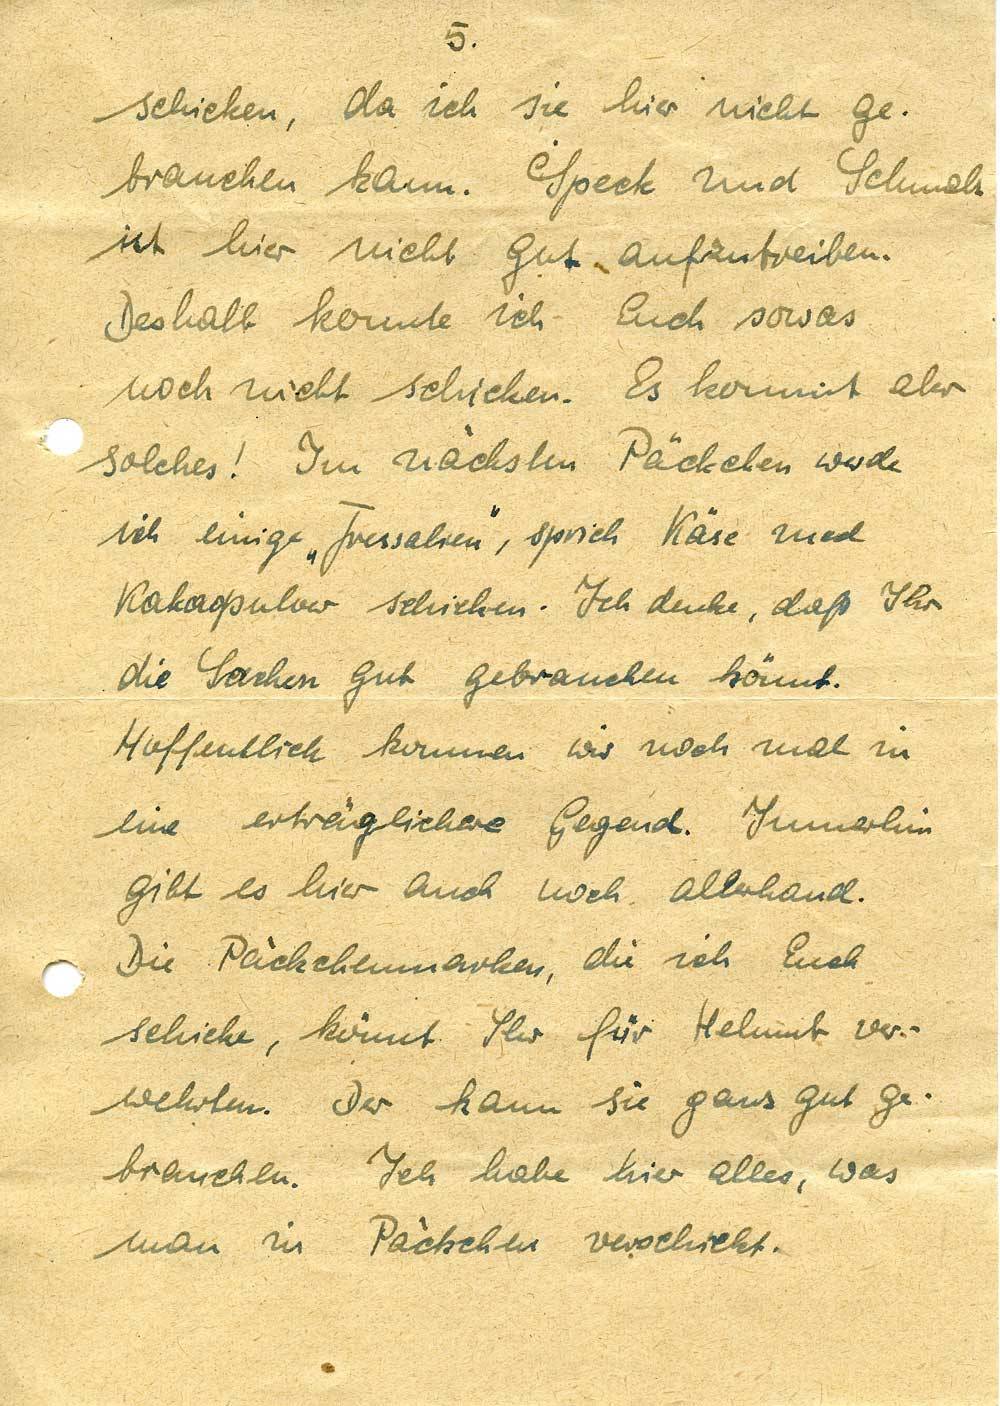 5.
schicken, da ich sie hier nicht ge-
brauchen kann. Speck und Schmalz
ist hier nicht gut aufzutreiben.
Deshalb konnte ich Euch sowas
noch nicht schicken. Es kommt aber
solches! Im nächsten Päckchen werde
ich einige „Fressalien", sprich Käse und
Kakaopulver schicken. Ich denke, daß Ihr
die Sachen gut gebrauchen könnt.
Hoffentlich kommen wir noch mal in
eine erträglichere Gegend. Immerhin
gibt es hier auch noch allerhand.
Die Päckchenmarken, die ich Euch
schicke, könnt Ihr für Helmut ver-
wehrten. Der kann sie ganz gut ge-
brauchen. Ich habe hier alles, was
man in Päckchen verschickt.